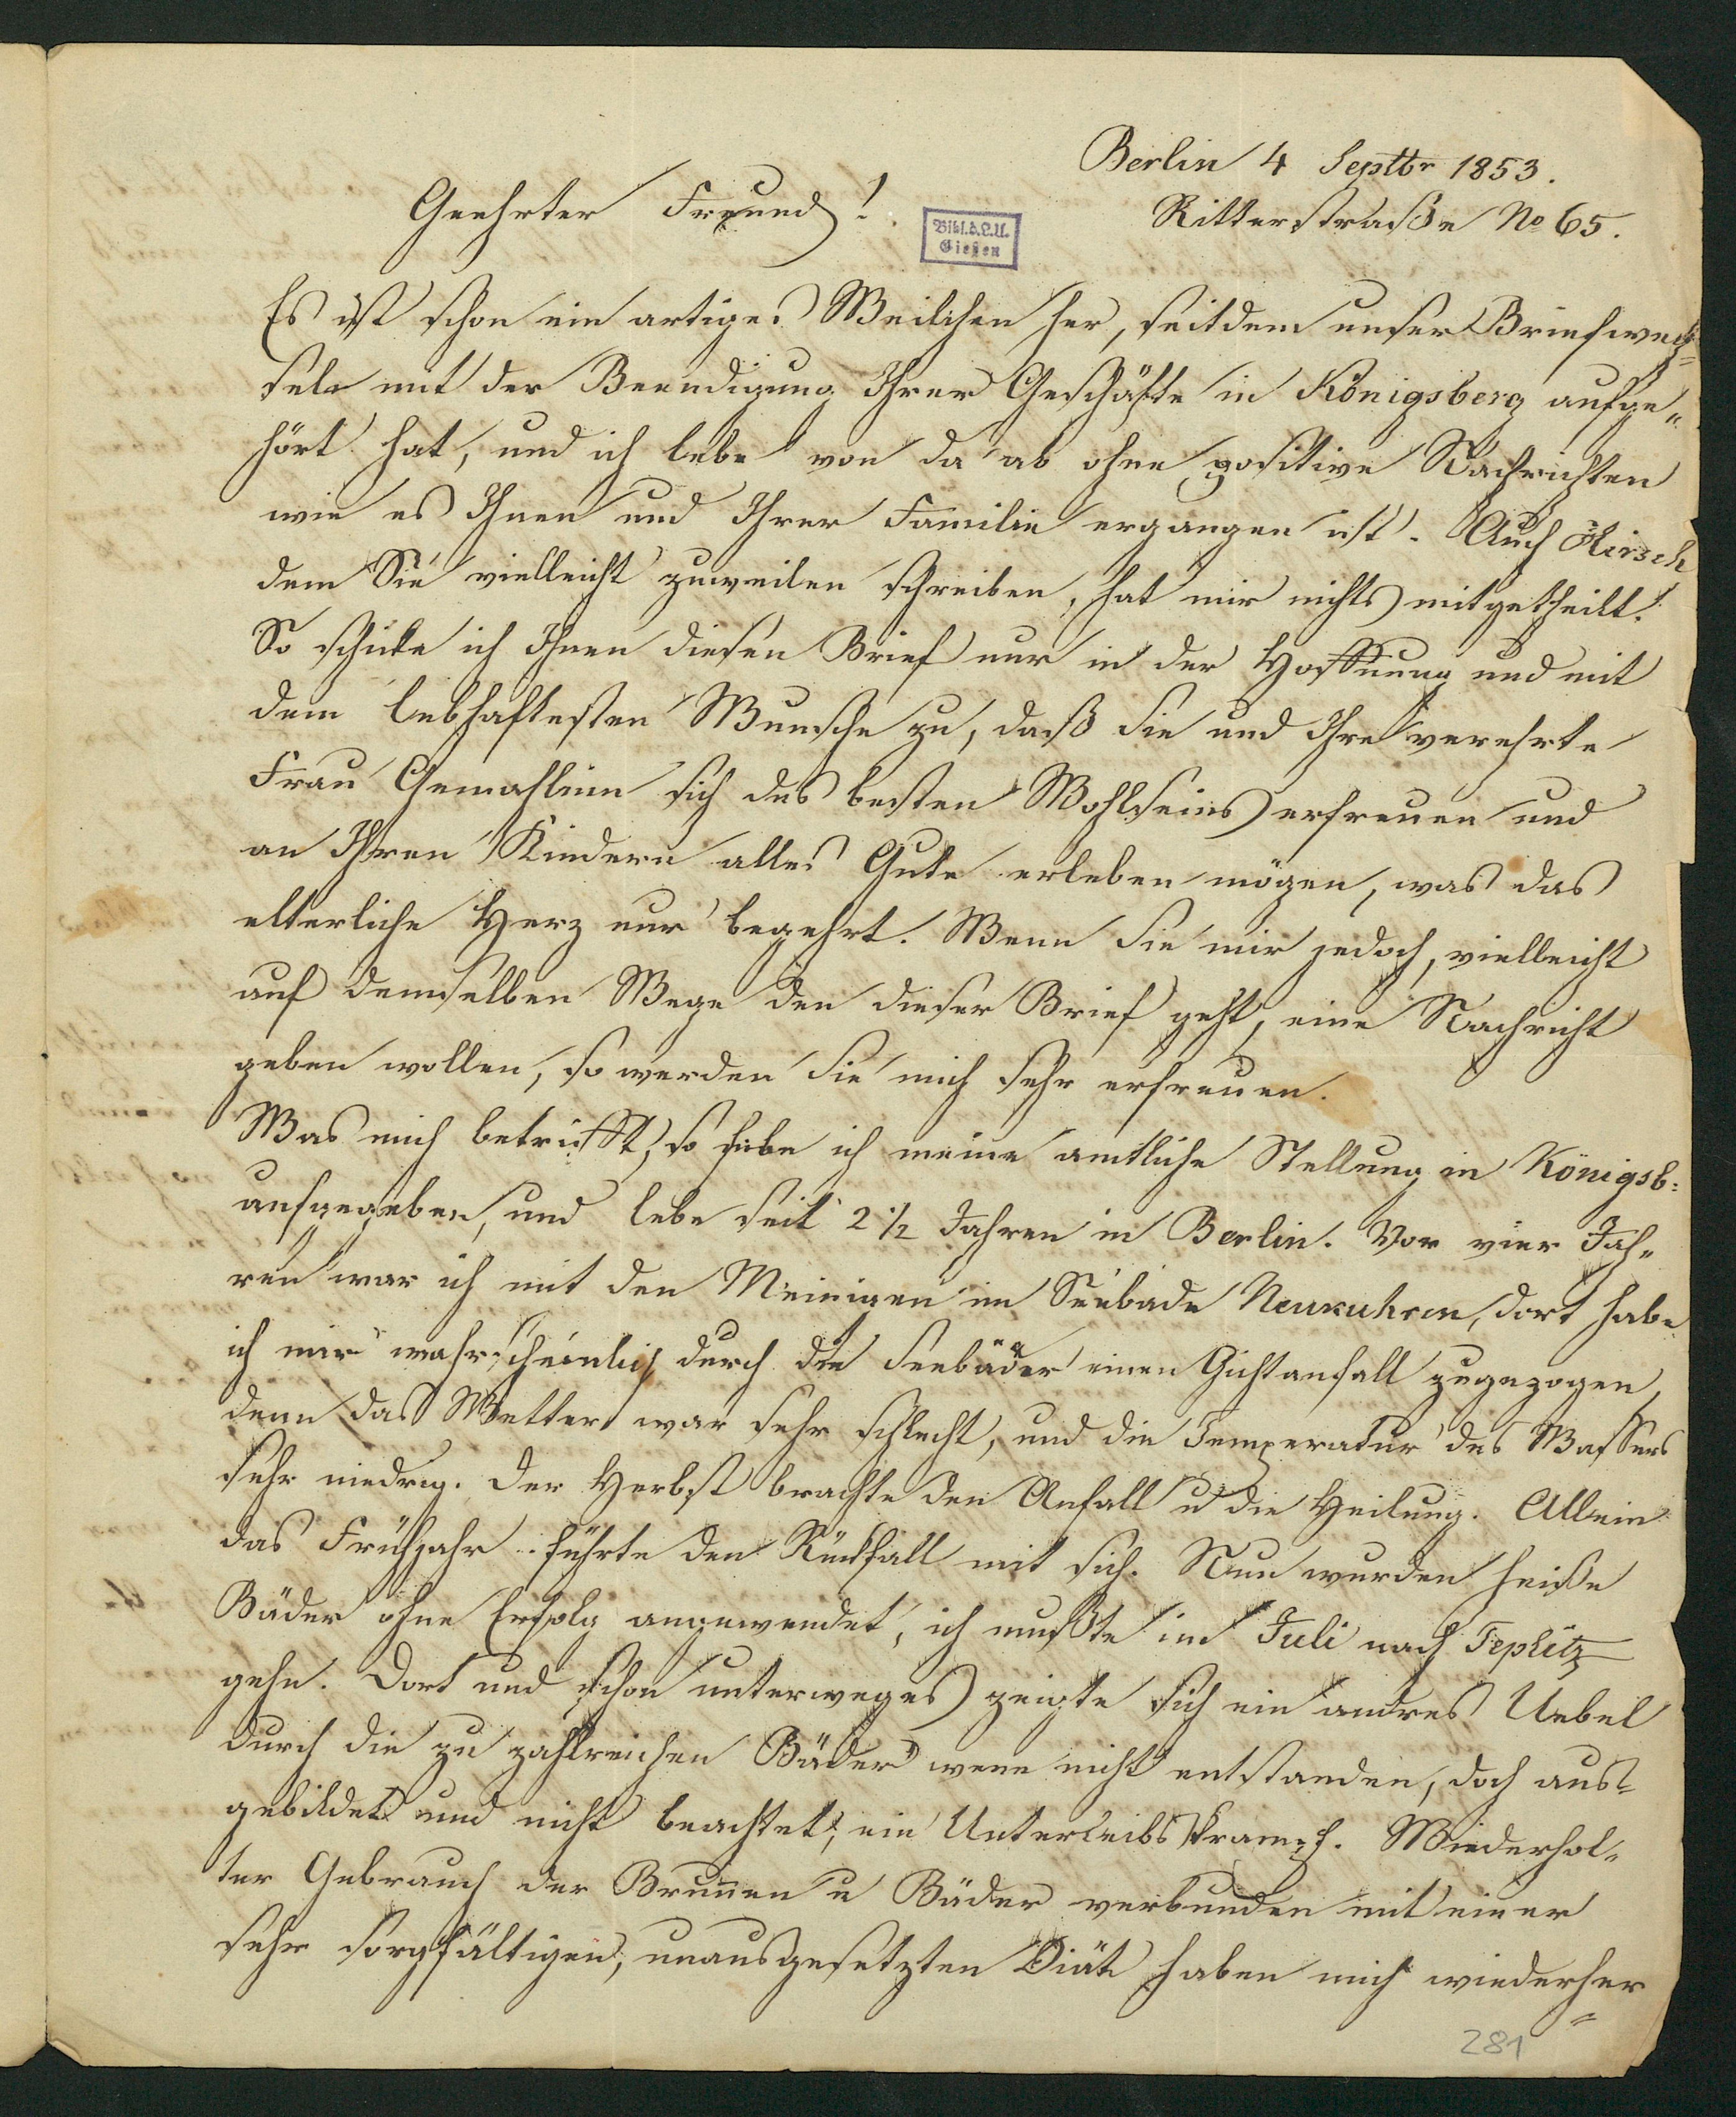 Berlin 4 Septbr 1853.
Geehrter Freund!
Ritterstraße No 65.
Bibl. d. L. U.
Gießen
Es ist schon ein artiges Weilchen her, seitdem unser Briefwech=
sel mit der Beendigung Ihrer Geschäfte in Königsberg aufge„
hört hat, und ich lebe von da ab ohne positive Nachrichten
wie es Ihnen und Ihrer Familie ergangen ist. Auch Hirsch
dem Sie vielleicht zuweilen schreiben, hat mir nichts mitgetheilt.
So schicke ich Ihnen diesen Brief nur in der Hoffnung und mit
dem lebhaftesten Wunsche zu, daß Sie und Ihre verehrte
Frau Gemahlinn sich des besten Wohlseins erfreuen und
an Ihren Kindern alles Gute erleben mögen, was das
elterliche Herz nur begehrt. Wenn Sie mir jedoch, vielleicht
auf demselben Wege den dieser Brief geht, eine Nachricht
geben wollen, so werden Sie mich sehr erfreuen.
Was mich betrifft, so habe ich meine amtliche Stellung in Königsb:
aufgegeben, und lebe seit 2 1/2 Jahren in Berlin. Vor vier Jah„
ren war ich mit den Meinigen im Seebade Neukuhren, dort habe
ich mir wahrscheinlich durch die Seebäder einen Gichtanfall zugezogen,
denn das Wetter war sehr schlecht, und die Temperatur des Wassers
sehr niedrig. Der Herbst brachte den Anfall u die Heilung. Allein
das Frühjahr führte den Rückfall mit sich. Nun wurden heiße
Bäder ohne Erfolg angewendet, ich mußte im Juli nach Teplitz
gehn. Dort und schon unterweges zeigte sich ein andres Uebel
durch die zu zahlreichen Bäder wenn nicht entstanden, doch aus=
gebildet und nicht beachtet, ein Unterleibskrampf. Wiederhol„
ter Gebrauch der Brunnen u Bäder verbunden mit einer
sehr sorgfältigen, unausgesetzten Diät haben mich wiederher
=
281